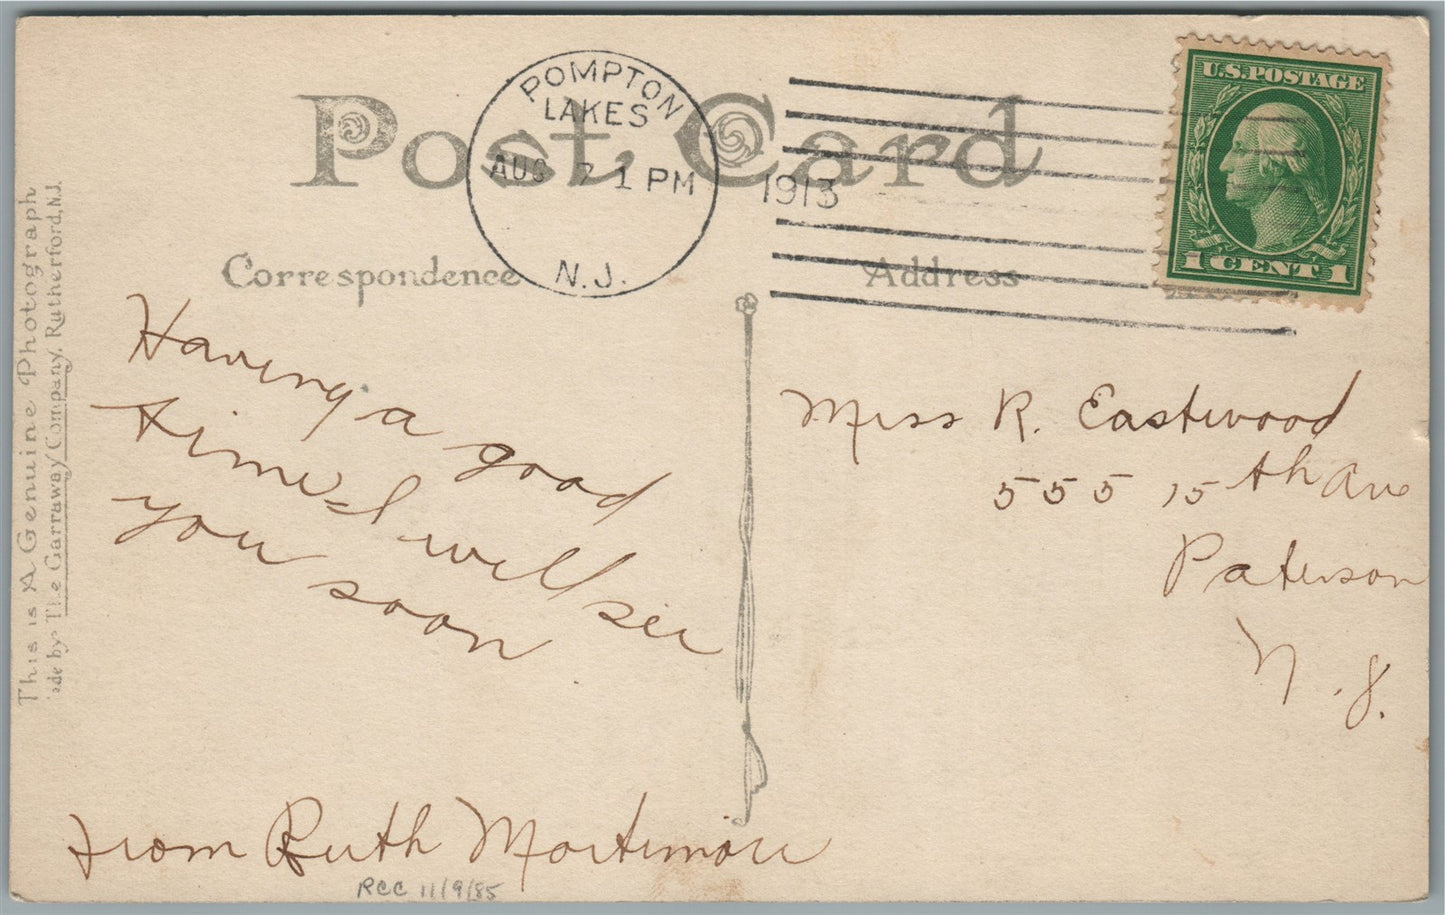 Post Card
POMPTON
LAKES
AUG 7 1 PM
N.J.
1913
U.S.POSTAGE
1 CENT 1
Correspondence
Address
Having a good
time I will see
you soon
from Ruth Mortimore
RCC 11/9/85
Miss R. Eastwood
555 15th Ave
Paterson
N.J.
This is A Genuine Photograph
ade by The Garraway Company, Rutherford, N.J.